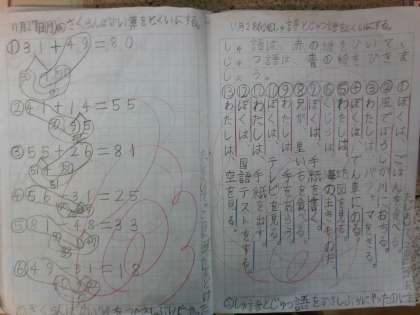 11月27日(月)さくらんぼ計算をとくいにする。
①31+49=80
②41+14=55
③55+26=81
④56-31=25
⑤81-48=33
⑥49-31=18
11月28日(火)しゅ語とじゅつ語をとくいにする。
しゅ語は、赤の線をひいて、
じゅつ語は、青の線をひきま
しょう。
①ぼくは、ごはんを食べる。
②風でぼうしが川におちる。
③わたしは、パジャマをきる。
④ぼくは、でん車にのる。
⑤わたしは、地図を見る。
⑥くじらは、海の生きものだ。
⑦ぼくは、手紙を書く。
⑨わたしは、手をあらう。
⑩ぼくは、テレビを見る。
⑪わたしは、手紙を出す。
⑫ぼくは、国語テストをする。
⑬わたしは、空を見る。